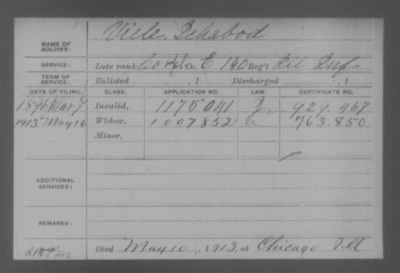 NAME OF SOLDIER: Viele, Ichabod
SERVICE: Late rank Corpl, Co. E, 140 Reg't Ill Inf
TERM OF SERVICE: Enlisted , 1 Discharged , 1
DATE OF FILING. CLASS. APPLICATION NO. LAW. CERTIFICATE NO.
1896 Mar 9 Invalid, 1175041 929.467
1913 May 16 Widow, 1007852 763.850
Minor,
ADDITIONAL SERVICES:
REMARKS:
Died May 10, 1913, at Chicago Ill